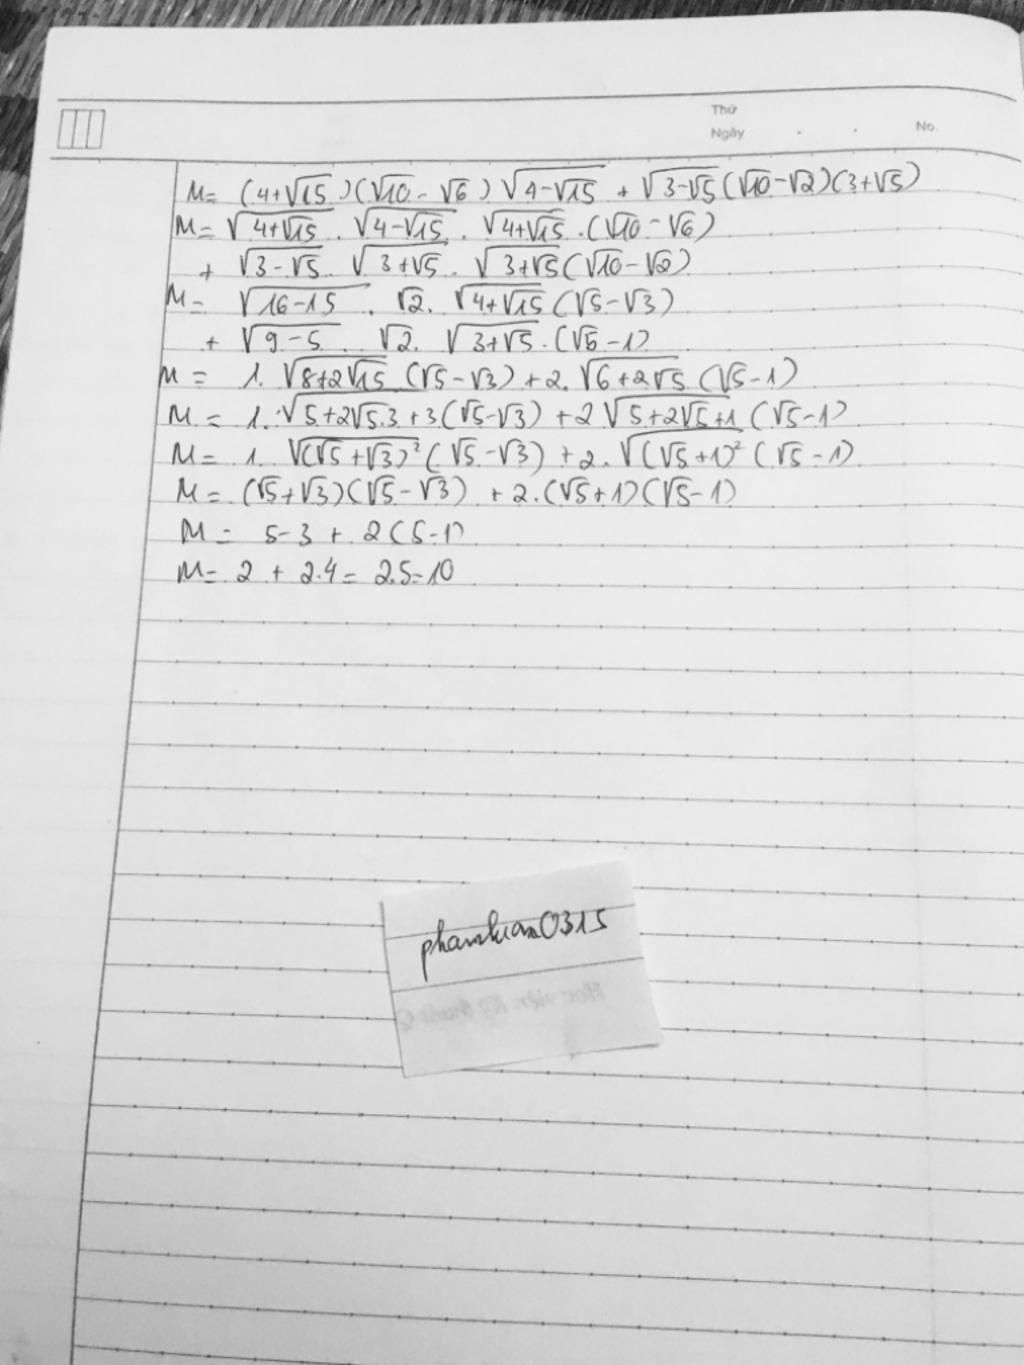 Thứ
Ngày . . No.
M = (4+√15)(√10 - √6) √4-√15 + √3-√5 (√10-√2)(3+√5)
M = √4+√15 . √4-√15 . √4+√15 . (√10 - √6)
+ √3-√5 . √3+√5 . √3+√5 (√10-√2)
M = √16-15 . √2. √4+√15 (√5-√3)
+ √9-5 . √2. √3+√5 . (√5-1)
M = 1. √8+2√15 (√5-√3) + 2. √6+2√5 (√5-1)
M = 1. √5+2√5.3+3 (√5-√3) + 2 √5+2√5+1 (√5-1)
M = 1. √(√5+√3)² (√5-√3) + 2. √(√5+1)² (√5-1)
M = (√5+√3)(√5-√3) + 2.(√5+1)(√5-1)
M = 5-3 + 2(5-1)
M = 2 + 2.4 = 2.5=10